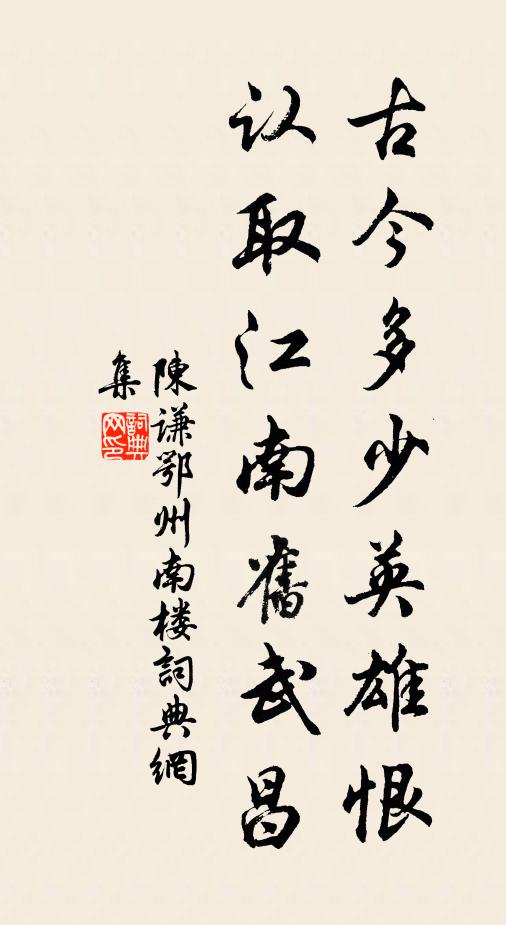 古今多少英雄恨
认取江南舊武昌
陳谦鄂州南楼詞典網
集
詞典
网印